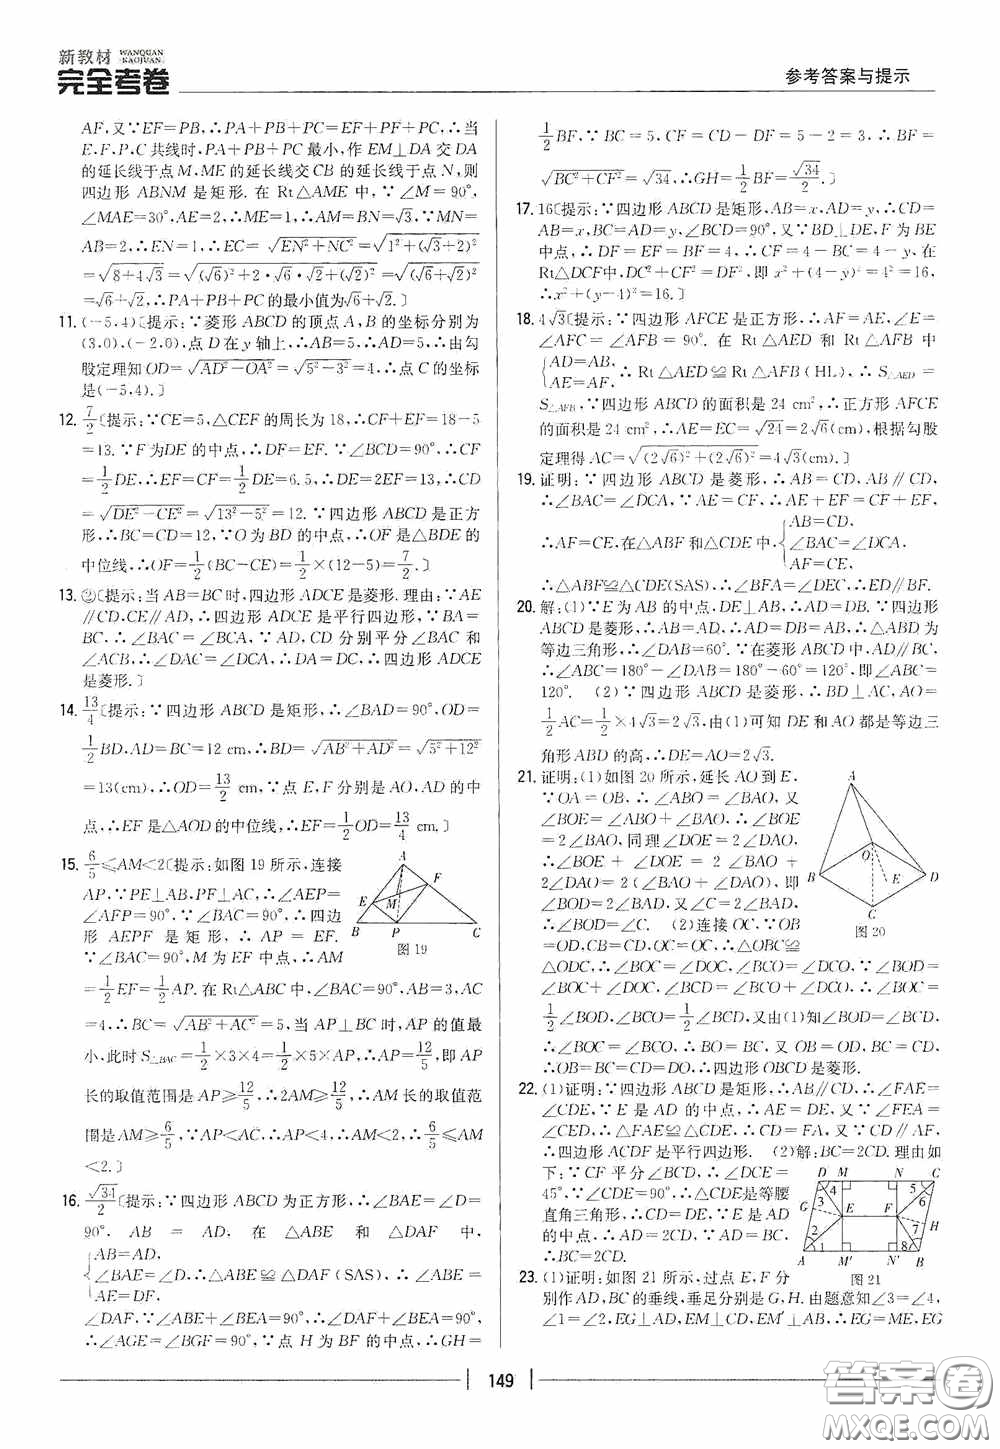 新教材 WANQUAN KAOJUAN
完全考卷
参考答案与提示
AF,又∵EF=PB,∴PA+PB+PC=EF+PF+PC,∴当
E、F、P、C共线时,PA+PB+PC最小,作EM⊥DA交DA
的延长线于点M,ME的延长线交CB的延长线于点N,则
四边形ABNM是矩形.在Rt△AME中,∵∠M=90°,
∠MAE=30°,AE=2,∴ME=1,∴AM=BN=√3,∵MN=
AB=2,∴EN=1,∴EC=√(EN²+NC²)=√(1²+(√3+2)²)
=√(8+4√3)=√((√6)²+2·√6·√2+(√2)²)=√((√6+√2)²)
=√6+√2,∴PA+PB+PC的最小值为√6+√2.〕
11.(-5,4)〔提示:∵菱形ABCD的顶点A,B的坐标分别为
(3,0),(-2,0),点D在y轴上,∴AB=5,∴AD=5,∴由勾
股定理知OD=√(AD²-OA²)=√(5²-3²)=4,∴点C的坐标
是(-5,4).〕
12. 7/2〔提示:∵CE=5,△CEF的周长为18,∴CF+EF=18-5
=13.∵F为DE的中点,∴DF=EF.∵∠BCD=90°,∴CF
=1/2DE,∴EF=CF=1/2DE=6.5,∴DE=2EF=13,∴CD
=√(DE²-CE²)=√(13²-5²)=12.∵四边形ABCD是正方
形,∴BC=CD=12,∵O为BD的中点,∴OF是△BDE的
中位线,∴OF=1/2(BC-CE)=1/2×(12-5)=7/2.〕
13.②〔提示:当AB=BC时,四边形ADCE是菱形.理由:∵AE
∥CD,CE∥AD,∴四边形ADCE是平行四边形,∵BA=
BC,∴∠BAC=∠BCA,∵AD,CD分别平分∠BAC和
∠ACB,∴∠DAC=∠DCA,∴DA=DC,∴四边形ADCE
是菱形.〕
14. 13/4〔提示:∵四边形ABCD是矩形,∴∠BAD=90°,OD=
1/2BD,AD=BC=12 cm,∴BD=√(AB²+AD²)=√(5²+12²)
=13(cm),∴OD=13/2 cm,∵点E,F分别是AO,AD的中
点,∴EF是△AOD的中位线,∴EF=1/2OD=13/4 cm.〕
15. 6/5≤AM<2〔提示:如图19所示,连接
AP,∵PE⊥AB,PF⊥AC,∴∠AEP=
∠AFP=90°,∵∠BAC=90°,∴四边
形AEPF是矩形,∴AP=EF.
∵∠BAC=90°,M为EF中点,∴AM
=1/2EF=1/2AP.在Rt△ABC中,∠BAC=90°,AB=3,AC
=4,∴BC=√(AB²+AC²)=5,当AP⊥BC时,AP的值最
小,此时S△BAC=1/2×3×4=1/2×5×AP,∴AP=12/5,即AP
长的取值范围是AP≥12/5,∴2AM≥12/5,∴AM长的取值范
围是AM≥6/5,∵AP<AC,∴AP<4,∴AM<2,∴6/5≤AM
<2.〕
A
E
M
F
B
P
C
图19
16. √34/2〔提示:∵四边形ABCD为正方形,∴∠BAE=∠D=
90°,AB=AD,在△ABE和△DAF中,
{AB=AD,
∠BAE=∠D,∴△ABE≌△DAF(SAS),∴∠ABE=
AE=DF,
∠DAF.∵∠ABE+∠BEA=90°,∴∠DAF+∠BEA=90°,
∴∠AGE=∠BGF=90°,∵点H为BF的中点,∴GH=
1/2BF,∵BC=5,CF=CD-DF=5-2=3,∴BF=
√(BC²+CF²)=√34,∴GH=1/2BF=√34/2.〕
17.16〔提示:∵四边形ABCD是矩形,AB=x,AD=y,∴CD=
AB=x,BC=AD=y,∠BCD=90°,又∵BD⊥DE,F为BE
中点,∴DF=EF=BF=4,∴CF=4-BC=4-y.在
Rt△DCF中,DC²+CF²=DF²,即x²+(4-y)²=4²=16,
∴x²+(y-4)²=16.〕
18.4√3〔提示:∵四边形AFCE是正方形,∴AF=AE,∠E=
∠AFC=∠AFB=90°.在Rt△AED和Rt△AFB中
{AD=AB,
AE=AF,∴Rt△AED≌Rt△AFB(HL),∴S△AED=
S△AFB,∵四边形ABCD的面积是24 cm²,∴正方形AFCE
的面积是24 cm²,∴AE=EC=√24=2√6(cm),根据勾股
定理得AC=√((2√6)²+(2√6)²)=4√3(cm).〕
19.证明:∵四边形ABCD是菱形,∴AB=CD,AB∥CD,
∴∠BAC=∠DCA,∵AE=CF,∴AE+EF=CF+EF,
∴AF=CE,在△ABF和△CDE中,{AB=CD,
∠BAC=∠DCA,
AF=CE,
∴△ABF≌△CDE(SAS),∴∠BFA=∠DEC,∴ED∥BF.
20.解:(1)∵E为AB的中点,DE⊥AB,∴AD=DB.∵四边形
ABCD是菱形,∴AB=AD,∴AD=DB=AB,∴△ABD为
等边三角形,∴∠DAB=60°.∵在菱形ABCD中,AD∥BC,
∴∠ABC=180°-∠DAB=180°-60°=120°,即∠ABC=
120°. (2)∵四边形ABCD是菱形,∴BD⊥AC,AO=
1/2AC=1/2×4√3=2√3,由(1)可知DE和AO都是等边三
角形ABD的高,∴DE=AO=2√3.
21.证明:(1)如图20所示,延长AO到E,
∵OA=OB,∴∠ABO=∠BAO,又
∠BOE=∠ABO+∠BAO,∴∠BOE
=2∠BAO,同理∠DOE=2∠DAO,
∴∠BOE+∠DOE=2∠BAO+
2∠DAO=2(∠BAO+∠DAO),即
∠BOD=2∠BAD,又∠C=2∠BAD,
∴∠BOD=∠C. (2)连接OC,∵OB
=OD,CB=CD,OC=OC,∴△OBC≌
△ODC,∴∠BOC=∠DOC,∠BCO=∠DCO,∵∠BOD=
∠BOC+∠DOC,∠BCD=∠BCO+∠DCO,∴∠BOC=
1/2∠BOD,∠BCO=1/2∠BCD,又由(1)知∠BOD=∠BCD,
∴∠BOC=∠BCO,∴BO=BC,又OB=OD,BC=CD,
∴OB=BC=CD=DO,∴四边形OBCD是菱形.
A
O
B
E
D
C
图20
22.(1)证明:∵四边形ABCD是矩形,∴AB∥CD,∴∠FAE=
∠CDE,∵E是AD的中点,∴AE=DE,又∵∠FEA=
∠CED,∴△FAE≌△CDE,∴CD=FA,又∵CD∥AF,
∴四边形ACDF是平行四边形. (2)解:BC=2CD.理由如
下:∵CF平分∠BCD,∴∠DCE=
45°,∵∠CDE=90°,∴△CDE是等腰
直角三角形,∴CD=DE,∵E是AD
的中点,∴AD=2CD,∵AD=BC,
∴BC=2CD.
D M N C
4 3 5 6
G E F H
2 1 7 8
A M' N' B
图21
23.(1)证明:如图21所示,过点E,F分
别作AD,BC的垂线,垂足分别是G,H.由题意知∠3=∠4,
∠1=∠2,EG⊥AD,EM⊥CD,EM'⊥AB,∴EG=ME,EG
149
答案卷
MXQE.COM